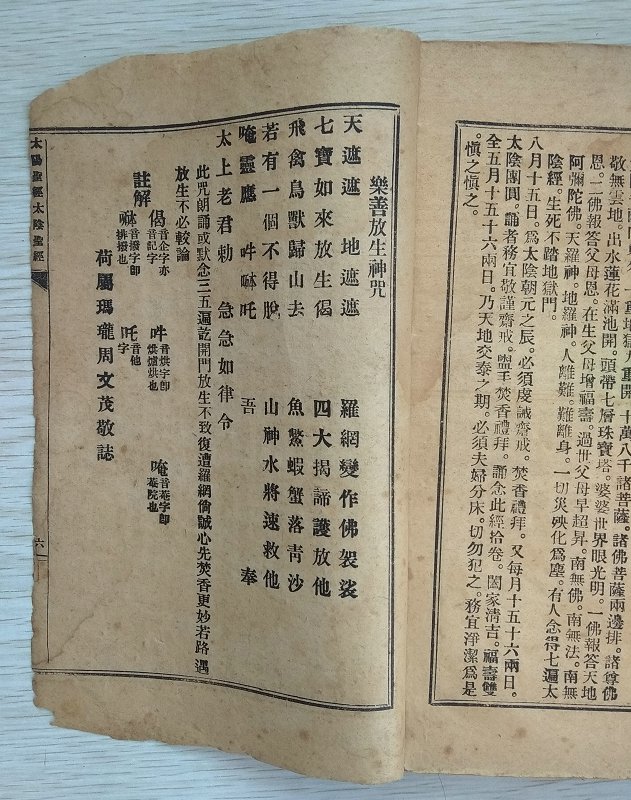 一重地獄八重開。十萬八千諸菩薩。諸佛菩薩兩邊排。諸尊佛
敬無雲地。出水蓮花滿池開。頭帶七層珠寶塔。婆婆世界眼光明。一佛報答天地
恩。二佛報答父母恩。在生父母增福壽。過世父母早超昇。南無佛。南無法。南無
阿彌陀佛。天羅神。地羅神。人離難。難離身。一切災殃化爲塵。有人念得七遍太
陰經。生死不踏地獄門。
八月十五日。爲太陰朝元之辰。必須虔誠齋戒。焚香禮拜。又每月十五十六兩日。
太陰團圓。誦者務宜敬謹齋戒。盥手焚香禮拜。誦念此經拾卷。闔家清吉。福壽雙
全五月十五十六兩日。乃天地交泰之期。必須夫婦分床。切勿犯之。務宜淨潔爲是
慎之慎之。
樂善放生神咒
天遮遮 地遮遮 羅網變作佛袈裟
七寶如來放生偈 四大揭諦護放他
飛禽鳥獸歸山去 魚鱉蝦蟹落青沙
若有一個不得脫 山神水將速救他
唵靈應 吽㖇吒 吾奉
太上老君勅 急急如律令
此咒朗誦或默念三五遍訖開門放生不致復遭羅網倘誠心先焚香更妙若路遇
放生不必較論
註解 偈音企字亦音記字 吽音烘字即烘爐烘也 唵音菴字即菴院也
㖇音撥字即排撥也 吒音他字
荷屬瑪瓏周文茂敬誌
太陽聖經太陰聖經
六